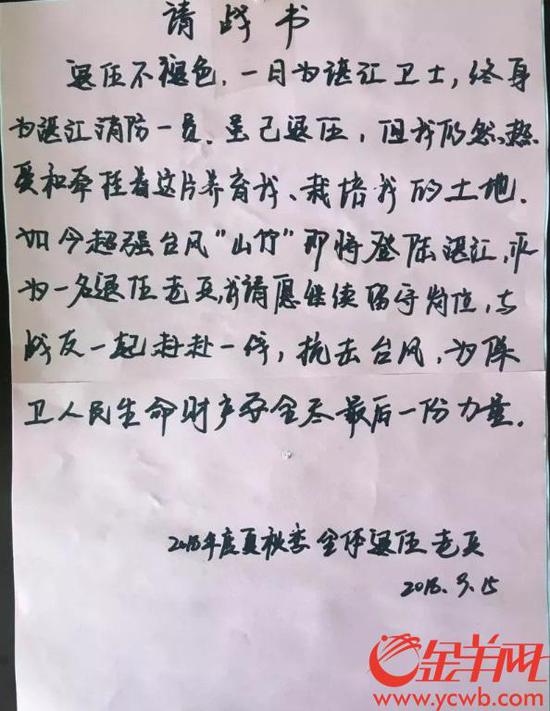 请战书
退伍不褪色,一日为湛江卫士,终身
为湛江消防一员。虽已退伍,但我仍然热
爱和牵挂着这片养育我、栽培我的土地.
如今超强台风"山竹"即将登陆湛江,作
为一名退伍老兵,我请愿继续留守岗位,与
战友一起奔赴一线,抗击台风,为保
卫人民生命财产安全尽最后一份力量.
2018年度夏秋季全体退伍老兵
2018.9.15
金羊网
www.ycwb.com